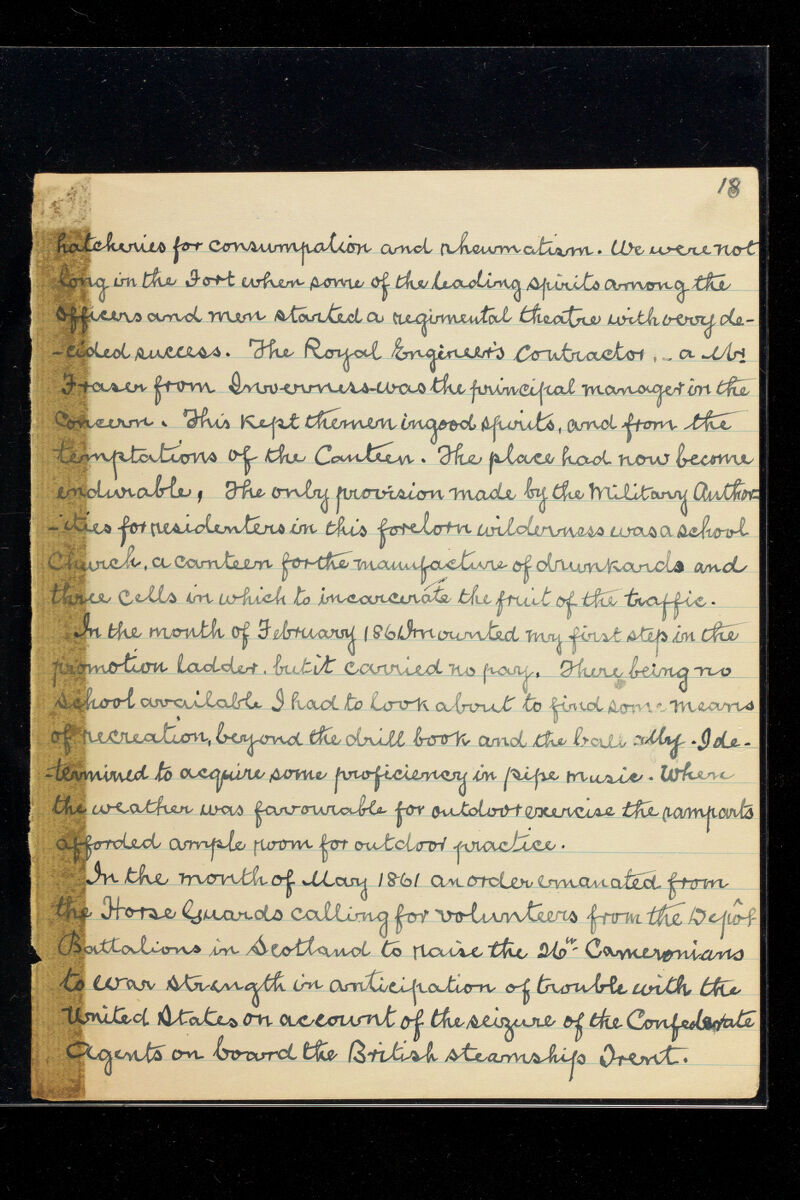 18
hatcheries for consumpation and rheumatism. We were not
long in the Fort when some of the leading spirits among the
officers and men started a regimental theatre with very de-
-cided success. The Royal Engineer's Contractor, - a Mr
Fraser from Inverness-was the principal manager in the
concern. This kept the men in good spirits, and from the
temptations of the Canteen. The place had now become
endurable, The only provision made by the Military Author=
-ities for residenters in this forelorn wilderness was a school
Church, a canteen for the manufacture of drunkards and
three cells in which to incarcerate the fruit of the traffic.
In the month of February 1861 I mounted my first step in the
promotion ladder, but it carried no pay. There being no
school available I had to look about to find some means
of recreation, beyond the drill book and the ball ally. I de-
-termined to acquire some proficiency in pipe music. When
the weather was favourable for outdoor exercise the ramparts
afforded ample room for outdoor practice.
In the month of May 1861 an order emanated from
the Horse Guards calling for volunteers from the Depôt
Battalions in Scotland to raise the 26th Cameronians
to war strength in anticipation of trouble with the
United States on account of the seizure of the Confederate
Agents on board the British steamship Trent.